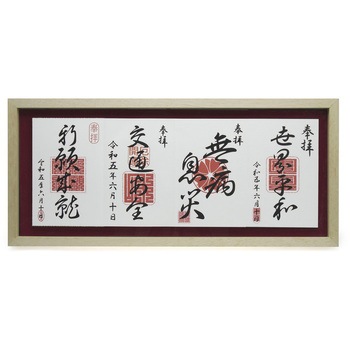 奉拝
世界平和
令和五年六月十日
奉拝
無病
息災
奉拝
交通安全
令和五年六月十日
奉拝
祈願成就
令和五年六月十日